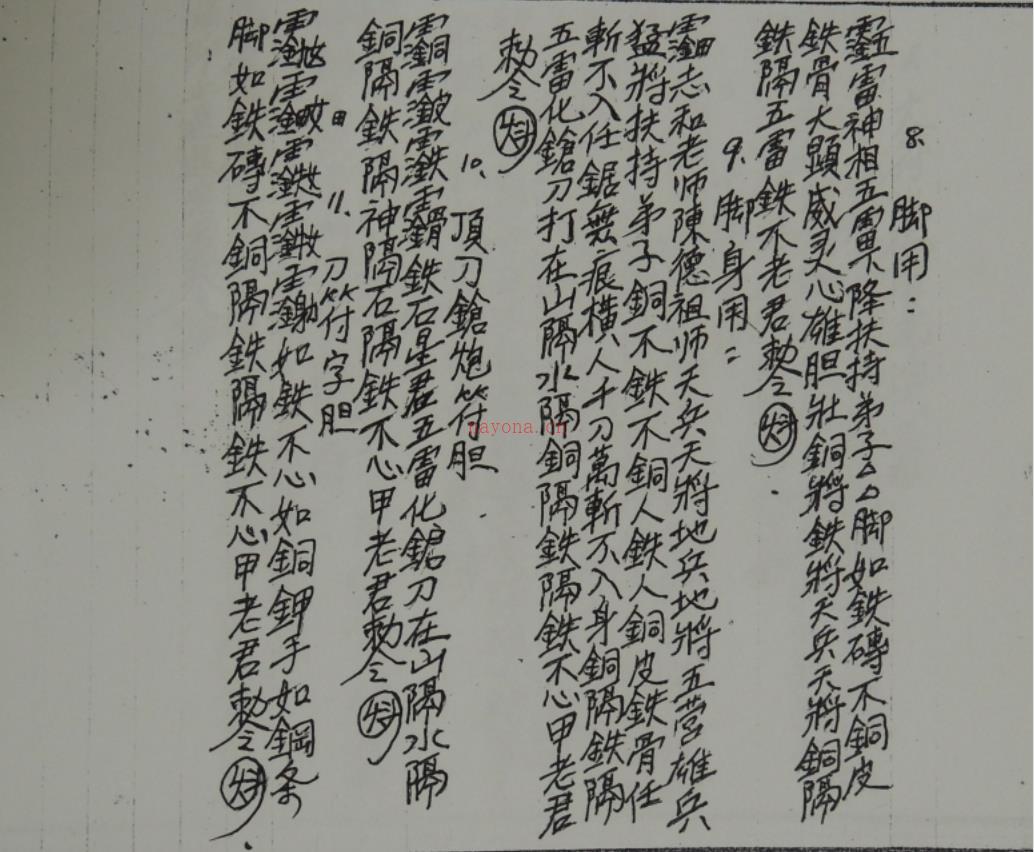 8. 脚用：
五雷神相五雷下降扶持弟子厶厶脚如鉄磚不銅皮
鉄骨大顯威灵心雄胆壯銅將鉄將天兵天將銅隔
鉄隔五雷鉄不老君勅令
9. 脚身用：
志和老师陳德祖师天兵天將地兵地將五营雄兵
猛將扶持弟子銅不鉄不銅人鉄人銅皮鉄骨任
斬不入任鋸無痕橫人千刀萬斬不入身銅隔鉄隔
五雷化鎗刀打在山隔水隔銅隔鉄隔鉄不心甲老君
勅令
10. 頂刀鎗炮符付胆
鉄石星君五雷化鎗刀在山隔水隔
銅隔鉄隔神隔石隔鉄不心甲老君勅令
11. 刀符付字胆
如鉄不心如銅鉀手如鋼条
脚如鉄磚不銅隔鉄隔鉄不心甲老君勅令
nayona.cn